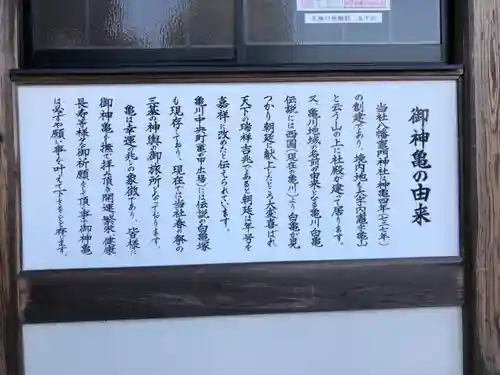 御神亀の由来
当社八幡竈門神社は神亀四年(七二七年)
の創建であり、境内地を大字内竈字亀山
と云う山の上に社殿が建って居ります。
又、亀川地域の名称の由来となる亀川白亀
伝説には西国(現在の亀川)より白亀が見
つかり朝廷に献上したところ大変喜ばれ
天下の瑞祥吉兆であると朝廷は年号を
嘉祥に改めたと伝えられています。
亀川中央町竃の市広場には伝説の白亀塚
も現存であり、現在には当社春の祭の
三基の神輿の御旅所となっております。
亀は幸運や兆しの象徴であり、皆様に
御神亀を撫で拝み頂き開運、繁栄、健康
長寿等様々な御祈願をして頂く事で御神亀
は必ずや願い事を叶えて下さることと存じます。